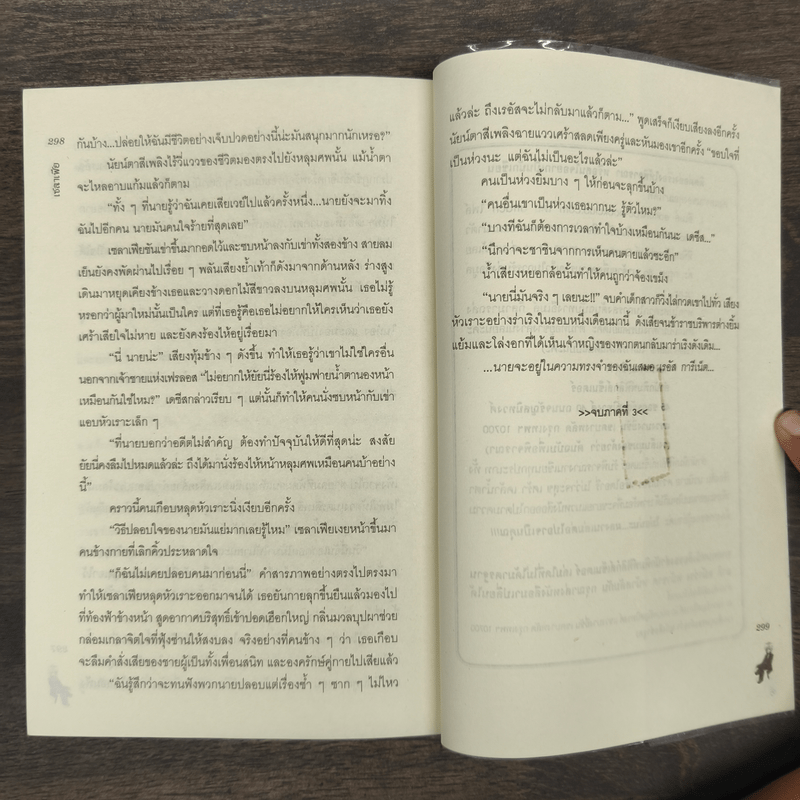 298
เซลาเฟีย
กันบ้าง...ปล่อยให้ฉันมีชีวิตอย่างเจ็บปวดอย่างนี้น่ะมันสนุกมากนักเหรอ?”
นัยน์ตาสีเพลิงไร้ที่แววของชีวิตมองตรงไปยังหลุมศพนั้น แม้น้ำตา
จะไหลอาบแก้มแล้วก็ตาม
“ทั้ง ๆ ที่นายรู้ว่าฉันเคยเสียเวย์ไปแล้วครั้งหนึ่ง...นายยังจะมาทิ้ง
ฉันไปอีกคน นายมันคนใจร้ายที่สุดเลย”
เซลาเฟียชันเข่าขึ้นมากอดไว้และซบหน้าลงกับเข่าทั้งสองข้าง สายลม
เย็นยังคงพัดผ่านไปเรื่อย ๆ พลันเสียงย่ำเท้าก็ดังมาจากด้านหลัง ร่างสูง
เดินมาหยุดเคียงข้างเธอและวางดอกไม้สีขาวลงบนหลุมศพนั้น เธอไม่รู้
หรอกว่าผู้มาใหม่นั้นเป็นใคร แต่ที่เธอรู้คือเธอไม่อยากให้ใครเห็นว่าเธอยัง
เศร้าเสียใจไม่หาย และยังคงร้องไห้อยู่เรื่อยมา
“นี่ นายน่ะ” เสียงทุ้มข้าง ๆ ดังขึ้น ทำให้เธอรู้ว่าเขาไม่ใช่ใครอื่น
นอกจากเจ้าชายแห่งเฟรลอส “ไม่อยากให้ยัยนี่ร้องไห้ฟูมฟายน้ำตานองหน้า
เหมือนกันใช่ไหม?” เดซีสกล่าวเรียบ ๆ แต่นั้นก็ทำให้คนนั่งซบหน้ากับเข่า
แอบหัวเราะเล็ก ๆ
“ที่นายบอกว่าอดีตไม่สำคัญ ต้องทำปัจจุบันให้ดีที่สุดน่ะ สงสัย
ยัยนี่คงลืมไปหมดแล้วล่ะ ถึงได้มานั่งร้องไห้หน้าหลุมศพเหมือนคนบ้าอย่าง
นี้”
คราวนี้คนเกือบหลุดหัวเราะนิ่งเงียบอีกครั้ง
“วิธีปลอบใจของนายมันแย่มากเลยรู้ไหม” เซลาเฟียเงยหน้าขึ้นมา
คนข้างกายที่เลิกคิ้วประหลาดใจ
“ก็ฉันไม่เคยปลอบคนมาก่อนนี่” คำสารภาพอย่างตรงไปตรงมา
ทำให้เซลาเฟียหลุดหัวเราะออกมาจนได้ เธอยันกายลุกขึ้นยืนแล้วมองไป
ที่ท้องฟ้าข้างหน้า สูดอากาศบริสุทธิ์เข้าปอดเฮือกใหญ่ กลิ่นมวลบุปผาช่วย
กล่อมเกลาจิตใจที่ฟุ้งซ่านให้สงบลง จริงอย่างที่คนข้าง ๆ ว่า เธอเกือบ
จะลืมคำสั่งเสียของชายผู้เป็นทั้งเพื่อนสนิท และองครักษ์คู่กายไปเสียแล้ว
“ฉันรู้สึกว่าจะทนฟังพวกนายปลอบแต่เรื่องซ้ำ ๆ ซาก ๆ ไม่ไหว
แล้วล่ะ ถึงเรอัสจะไม่กลับมาแล้วก็ตาม...” พูดเสร็จก็เงียบเสียงลงอีกครั้ง
นัยน์ตาสีเพลิงฉายแววเศร้าสลดเพียงครู่และหันมองเขาอีกครั้ง “ขอบใจที่
เป็นห่วงนะ แต่ฉันไม่เป็นอะไรแล้วล่ะ”
คนเป็นห่วงยิ้มบาง ๆ ให้ก่อนจะลุกขึ้นบ้าง
“คนอื่นเขาเป็นห่วงเธอมากนะ รู้ตัวไหม?”
“บางทีฉันก็ต้องการเวลาทำใจบ้างเหมือนกันนะ เดซีส...”
“นึกว่าจะชาชินจากการเห็นคนตายแล้วซะอีก”
น้ำเสียงหยอกล้อนั้นทำให้คนถูกว่าจ้องเขม็ง
“นายนี่มันจริง ๆ เลยนะ!!” จบคำเด็กสาวก็วิ่งไล่กวดเขาไปทั่ว เสียง
หัวเราะอย่างร่าเริงในรอบหนึ่งเดือนมานี้ ดังเสียจนข้าราชบริพารต่างยิ้ม
แย้มและโล่งอกที่ได้เห็นเจ้าหญิงของพวกตนกลับมาร่าเริงดังเดิม...
...นายจะอยู่ในความทรงจำของฉันเสมอ เรอัส การีเน็ต...
>>จบภาคที่ 3<<
299